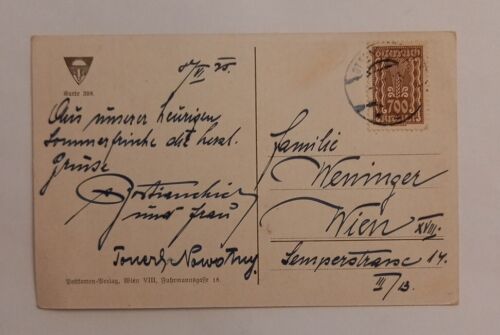 Karte 398.
VI 25.
Aus unserer heurigen
Sommerfrische die herzl.
Grüsse
und Frau
Nowotny.
Postkarten-Verlag, Wien VIII, Fuhrmannsgasse 18.
Österreich
700
Kronen
Familie
Weninger
Wien
XVIII.
Semperstrasse 14.
III/13.